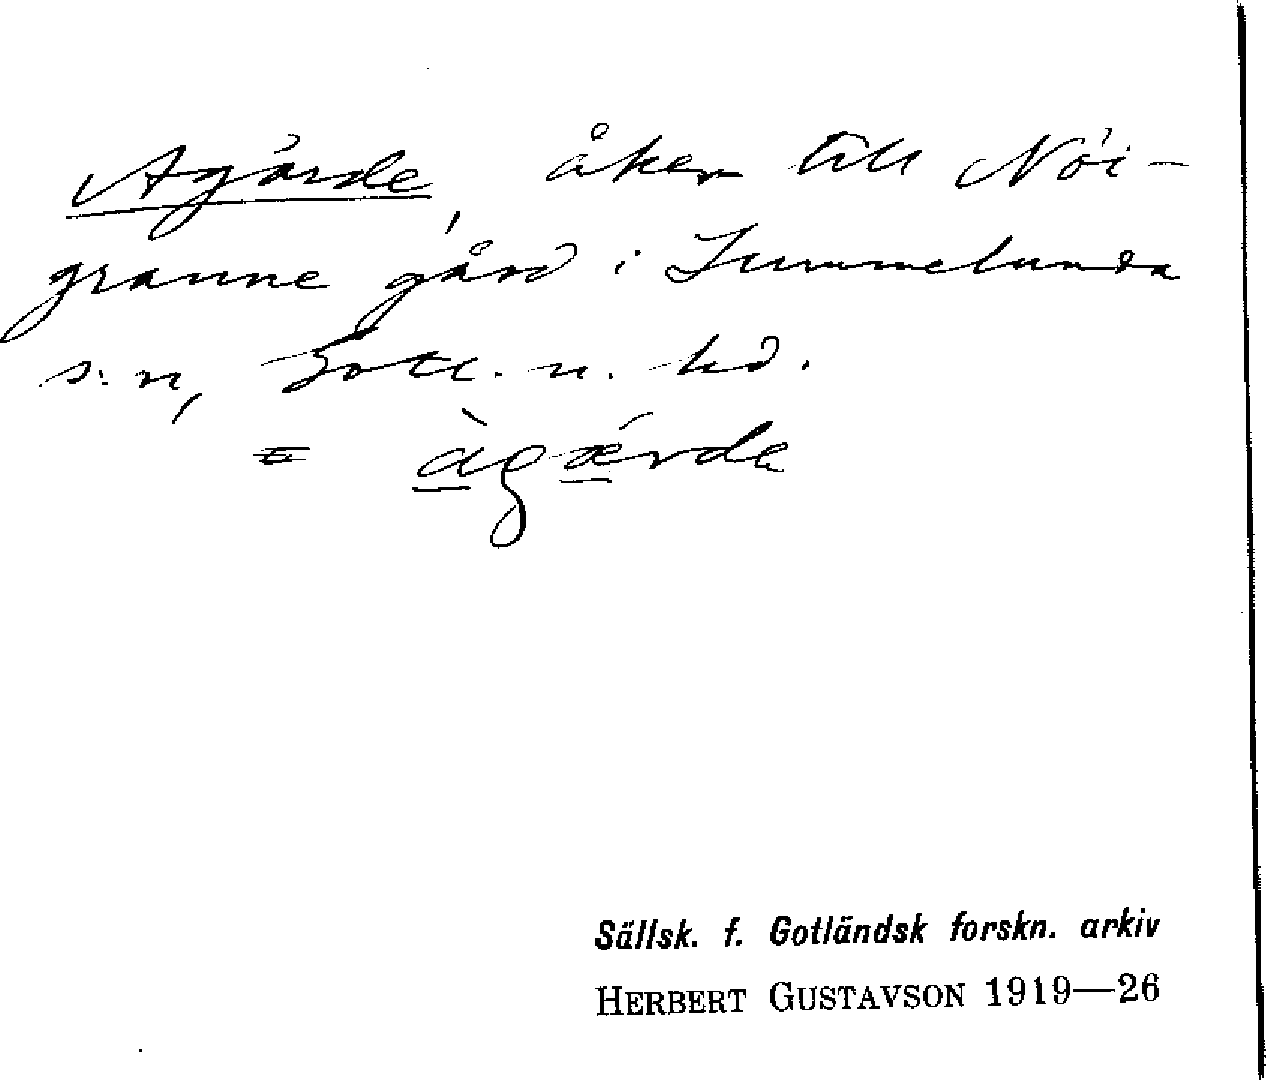 Agärde, åker till Nöi-
granne gård i Lummelunda
s:n, Gotl. n. hd.
= àgǽrde
Sällsk. f. Gotländsk forskn. arkiv
HERBERT GUSTAVSON 1919—26